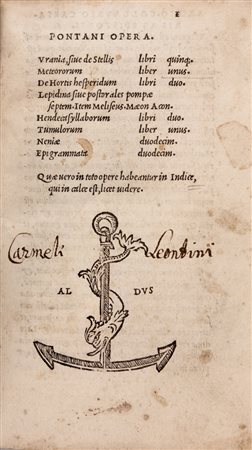 1
PONTANI OPERA.
Vrania, siue de Stellis libri quinq;
Meteororum liber unus.
De Hortis hesperidum libri duo.
Lepidina siue postorales pompæ
septem. Item Meliseus. Mæon Acon.
Hendecasyllaborum libri duo.
Tumulorum liber unus.
Neniæ duodecim.
Epigrammata duodecim.
Quæ uero in toto opere habeantur in Indice,
qui in calce est, licet uidere.
Carmeli Leontini
AL DVS